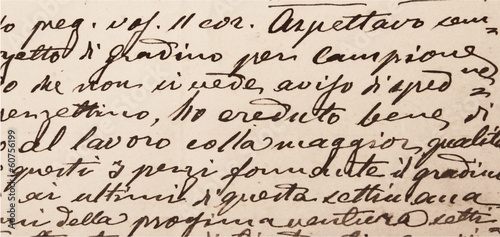 preg. vof. 11 cor. Aspettavo sem=
zetto di gradino per Campione
o che non si vede avviso di sped
enzettino, ho creduto bene di
al lavoro colla maggior qualità
questi 3 pezzi formante il gradino
ai ultimi di questa settimana
della prossima ventura setti
Adobe Stock | #60756199